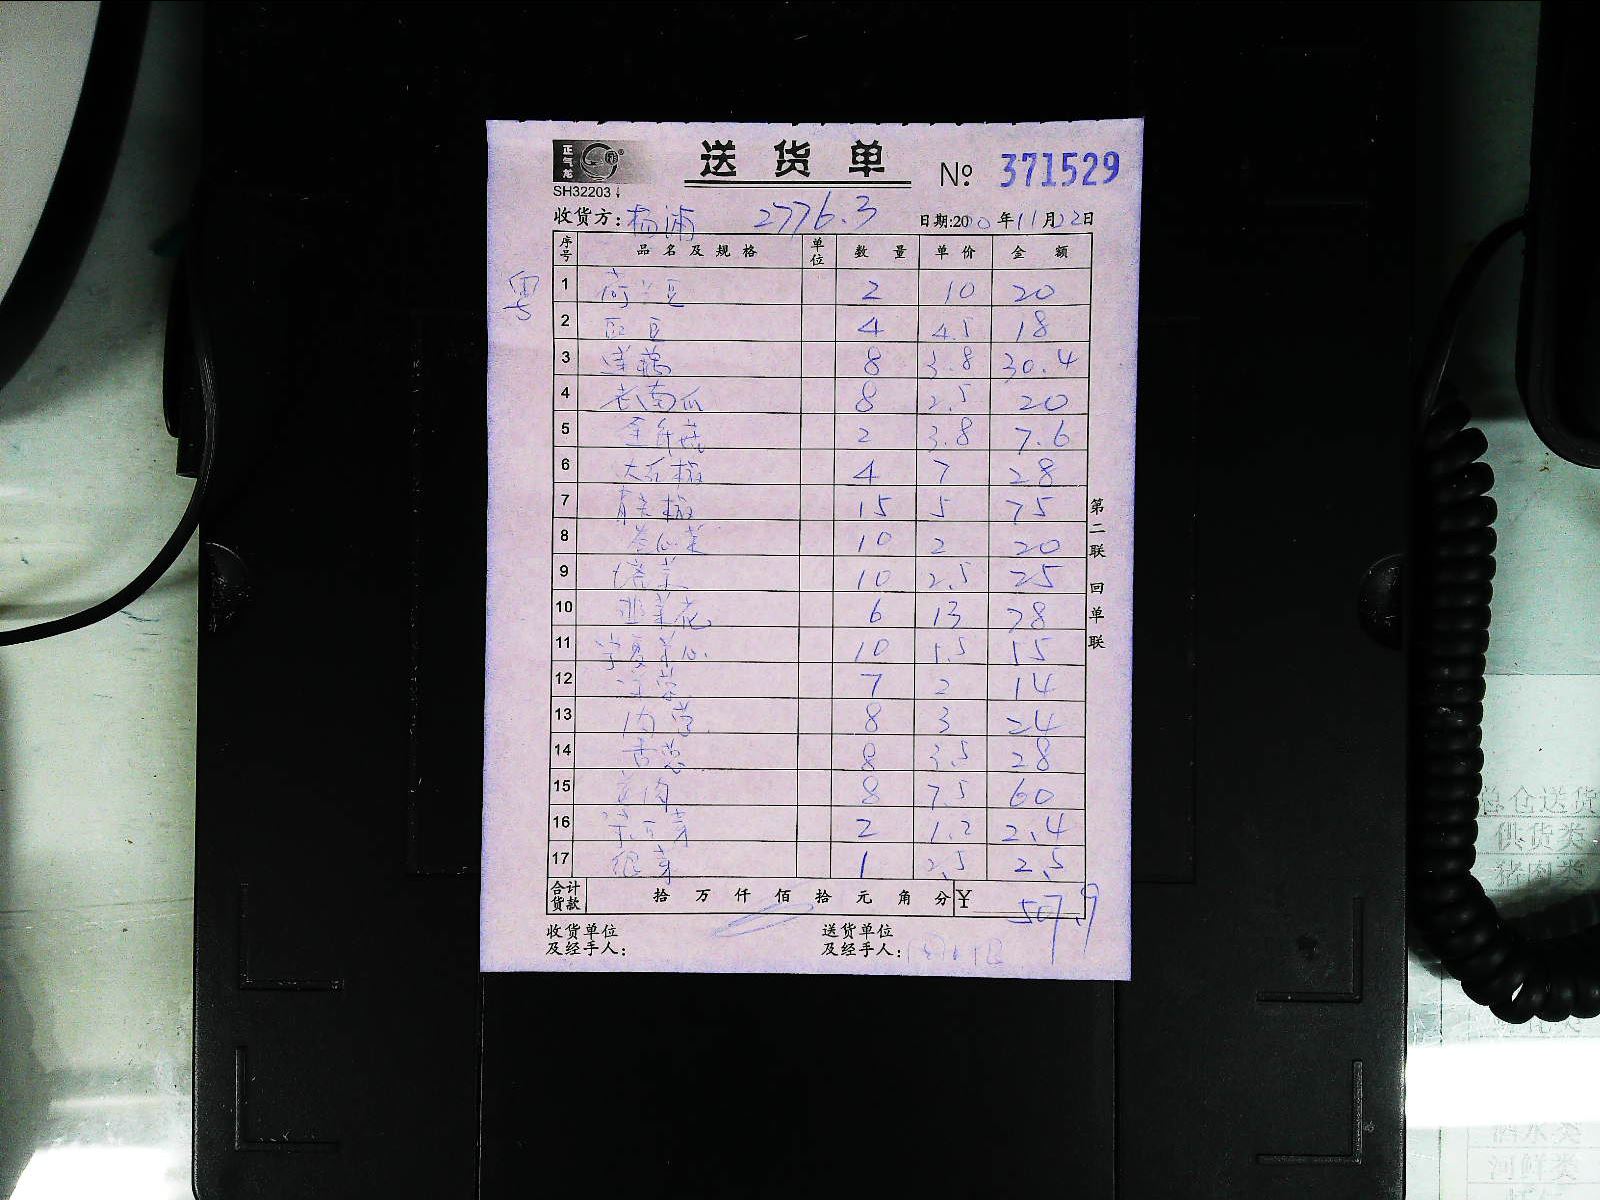 正气龙
送货单
№ 371529
SH32203
收货方: 杨浦 2776.3 日期:20 年11月22日
序号 品名及规格 单位 数量 单价 金额
粤
1 荷兰豆 2 10 20
2 豇豆 4 4.5 18
3 莲藕 8 3.8 30.4
4 老南瓜 8 2.5 20
5 金针菇 2 3.8 7.6
6 大红椒 4 7 28
7 青尖椒 15 5 75
8 卷心菜 10 2 20
9 塔菜 10 2.5 25
10 菜花 6 13 78
11 宁夏菜心 10 5.5 55
12 7 2 14
13 内 8 3 24
14 香葱 8 3.5 28
15 肉 8 7.5 60
16 豆芽 2 1.2 2.4
17 银芽 1 2.5 2.5
合计货款 拾 万 仟 佰 拾 元 角 分 ¥ 507.9
收货单位及经手人:
送货单位及经手人:
第二联 回单联
总仓送货
供货类
猪肉类
酒水类
河鲜类